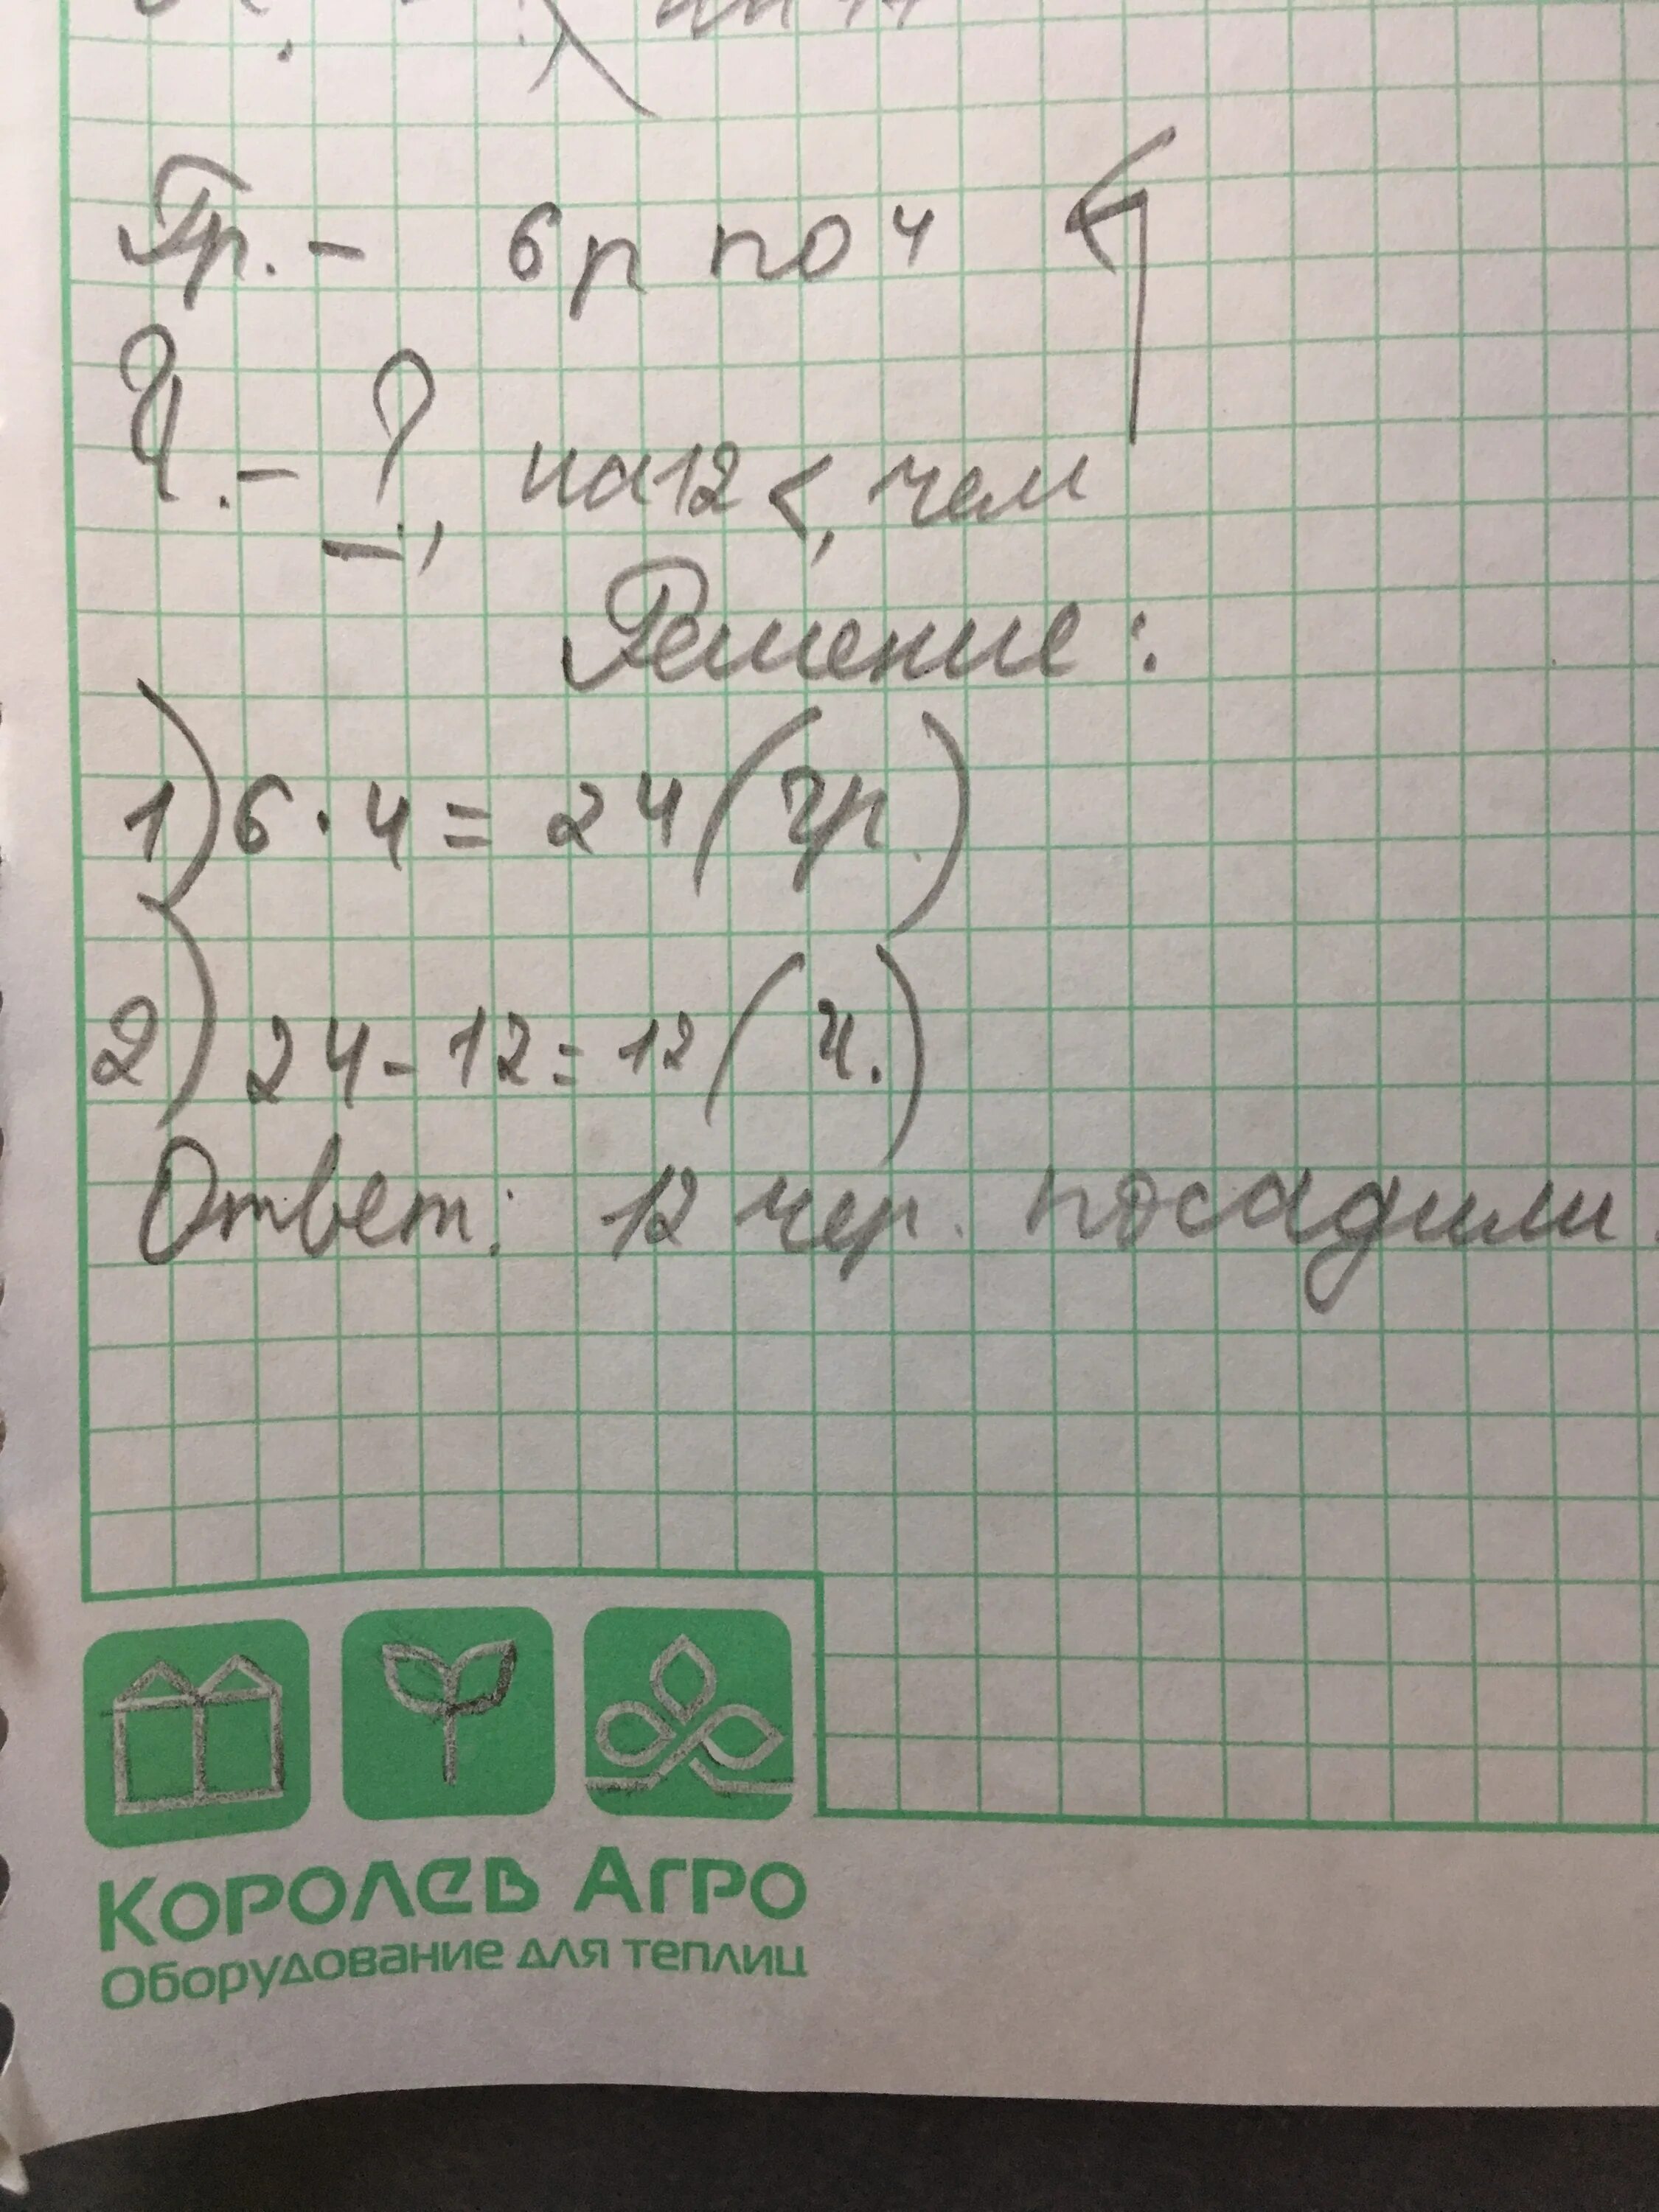 Гр. - 6 р по 4
Ч. - ?, на 12 <, чем
Решение:
1) 6 · 4 = 24 (гр.)
2) 24 - 12 = 12 (ч.)
Ответ: 12 чер. посадили.
КОРОЛЕВ АГРО
Оборудование для теплиц